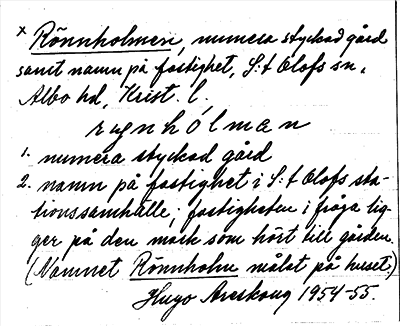 x Rönnholmen, numera styckad gård
samt namn på fastighet, S:t Olofs sn,
Albo hd, Krist. l.
rωnhólman
1. numera styckad gård
2. namn på fastighet i S:t Olofs sta-
tionssamhälle; fastigheten i fråga lig-
ger på den mark som hört till gården.
(Namnet Rönnholm målat på huset.)
Hugo Areskoug 1954-55.